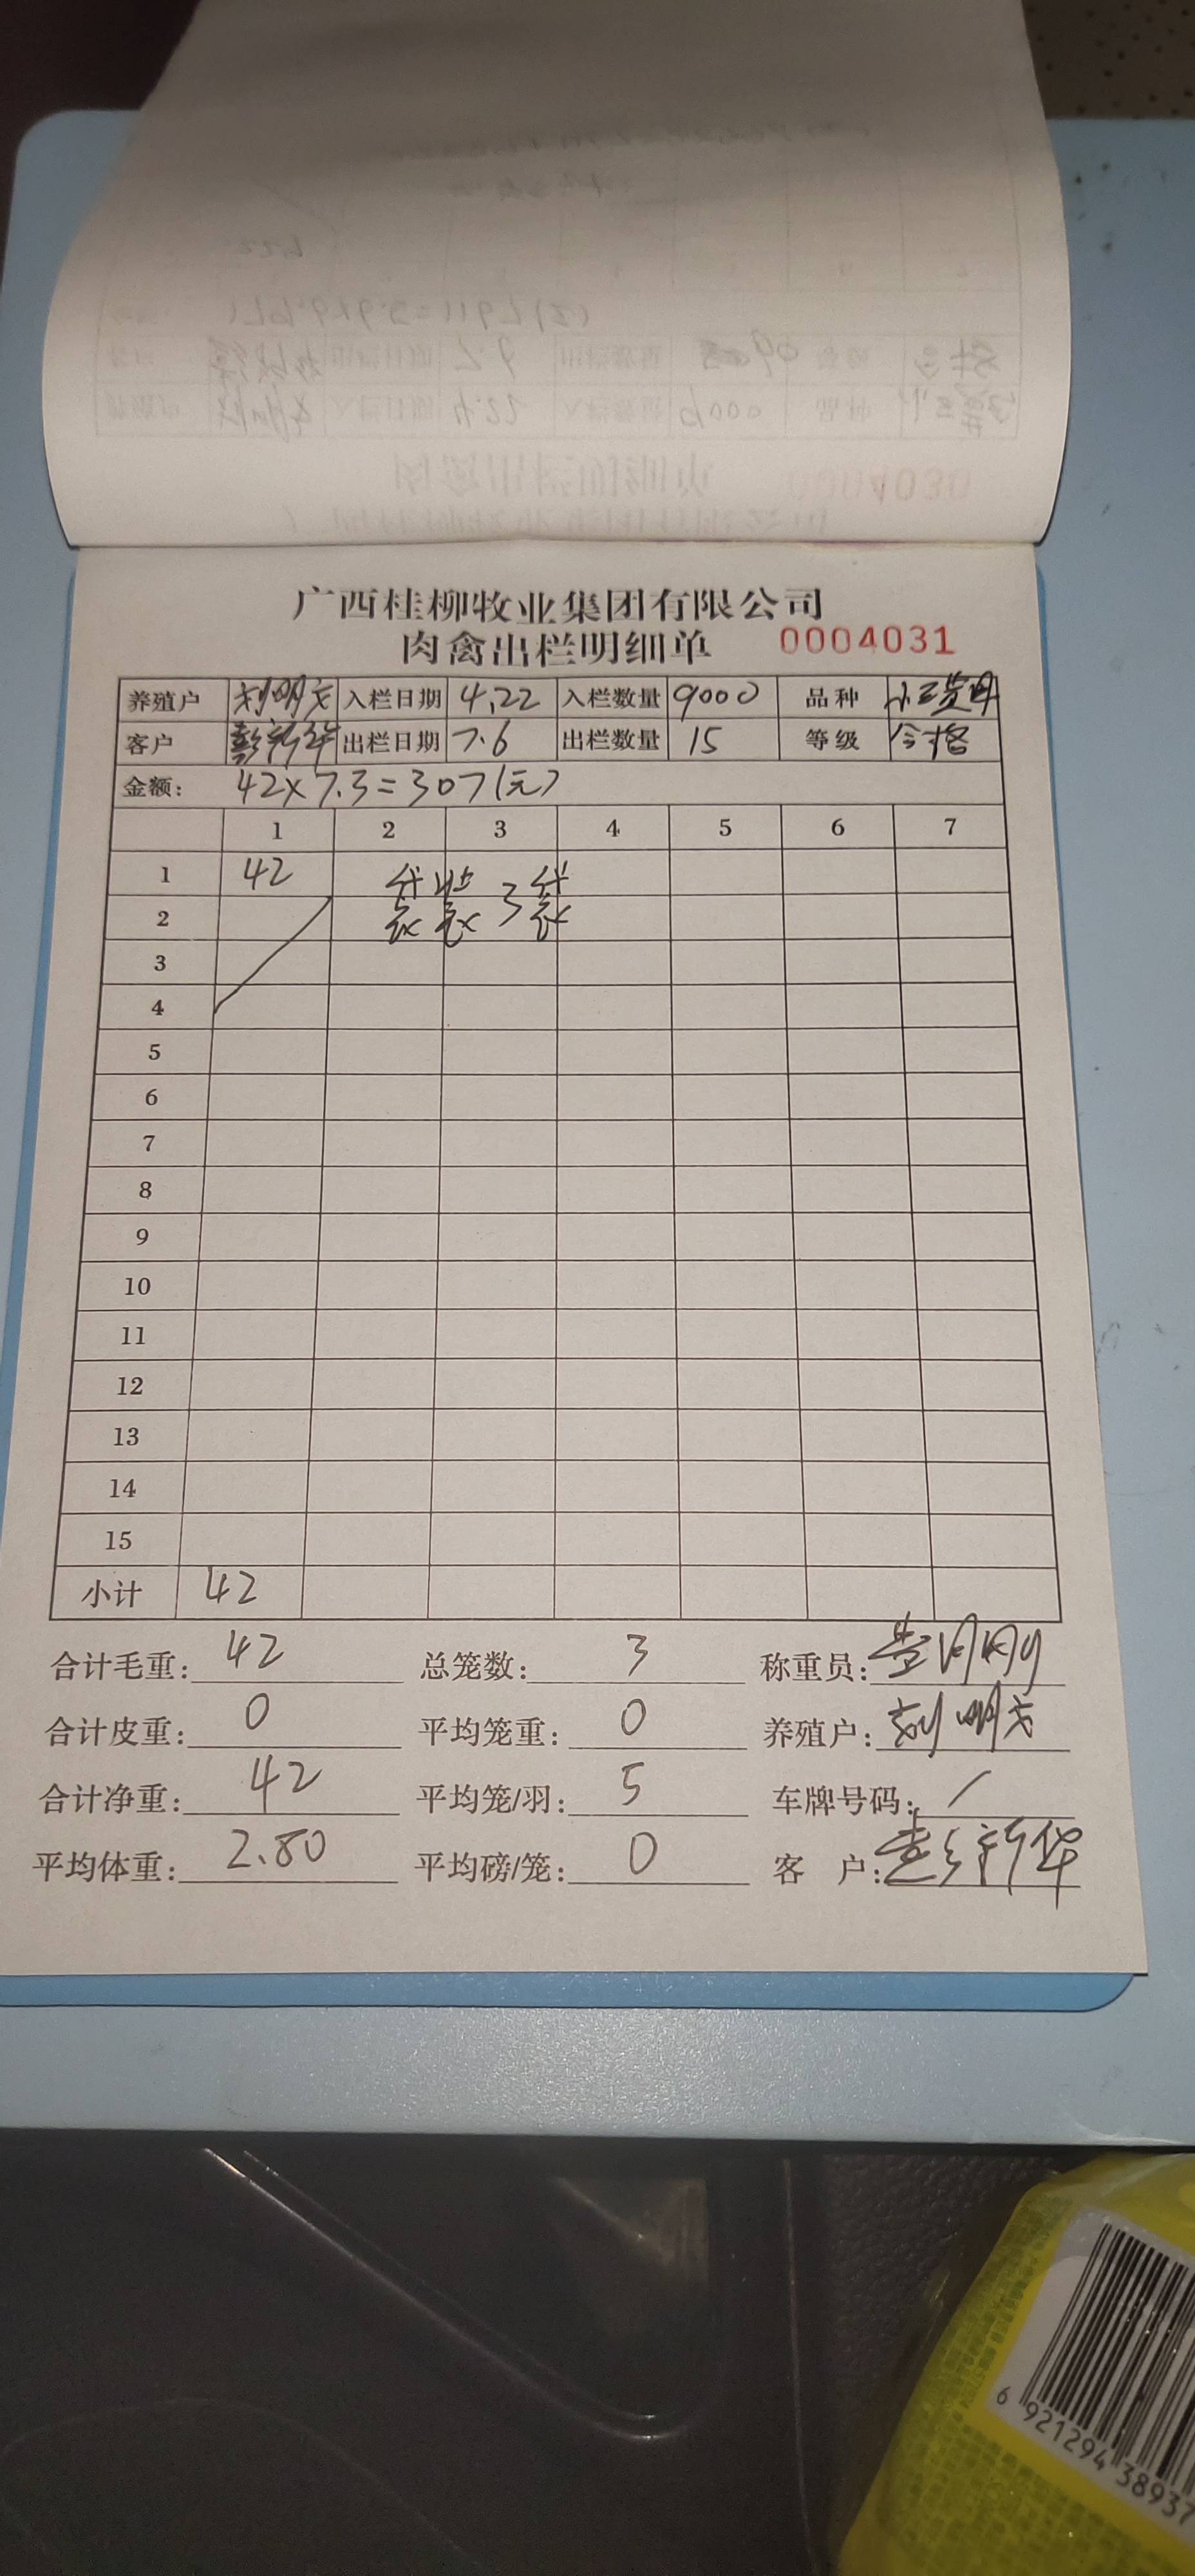 广西桂柳牧业集团有限公司
肉禽出栏明细单 0004031
养殖户 刘明 入栏日期 4.22 入栏数量 9000 品种
客户 彭新华 出栏日期 7.6 出栏数量 15 等级 合格
金额: 42×7.3=307(元)
1 2 3 4 5 6 7
1 42 袋装3袋
2
3
4
5
6
7
8
9
10
11
12
13
14
15
小计 42
合计毛重: 42 总笼数: 3 称重员:
合计皮重: 0 平均笼重: 0 养殖户: 刘明
合计净重: 42 平均笼/羽: 5 车牌号码: /
平均体重: 2.80 平均磅/笼: 0 客 户: 彭新华
6 921294 38937